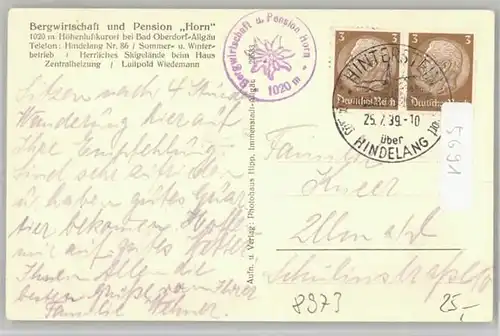 Bergwirtschaft und Pension „Horn"
1020 m Höhenluftkurort bei Bad Oberdorf-Allgäu
Telefon: Hindelang Nr. 86 / Sommer- u. Winter-
betrieb / Herrliches Skigelände beim Haus
Zentralheizung / Luitpold Wiedemann
Bergwirtschaft u. Pension Horn
1020 m
3 3
Deutsches Reich Deutsches Reich
HINTERSTEIN
25.7.39.-10
über
HINDELANG
Sitzen nach 4 Stund.
Wanderung hier auf
Ihre Empfehlung.
Sind sehr zufrieden
u. haben gutes Quar
tier bekommen. Hoffe
wir auf gutes Wetter
Ihnen Allen die
besten Grüße von Ihrer
Familie
Aufn. u. Verlag: Photohaus Hipp, Immenstadt-Allgäu
Familie
Kneer
Ulm a/d
5691
8973
25,-